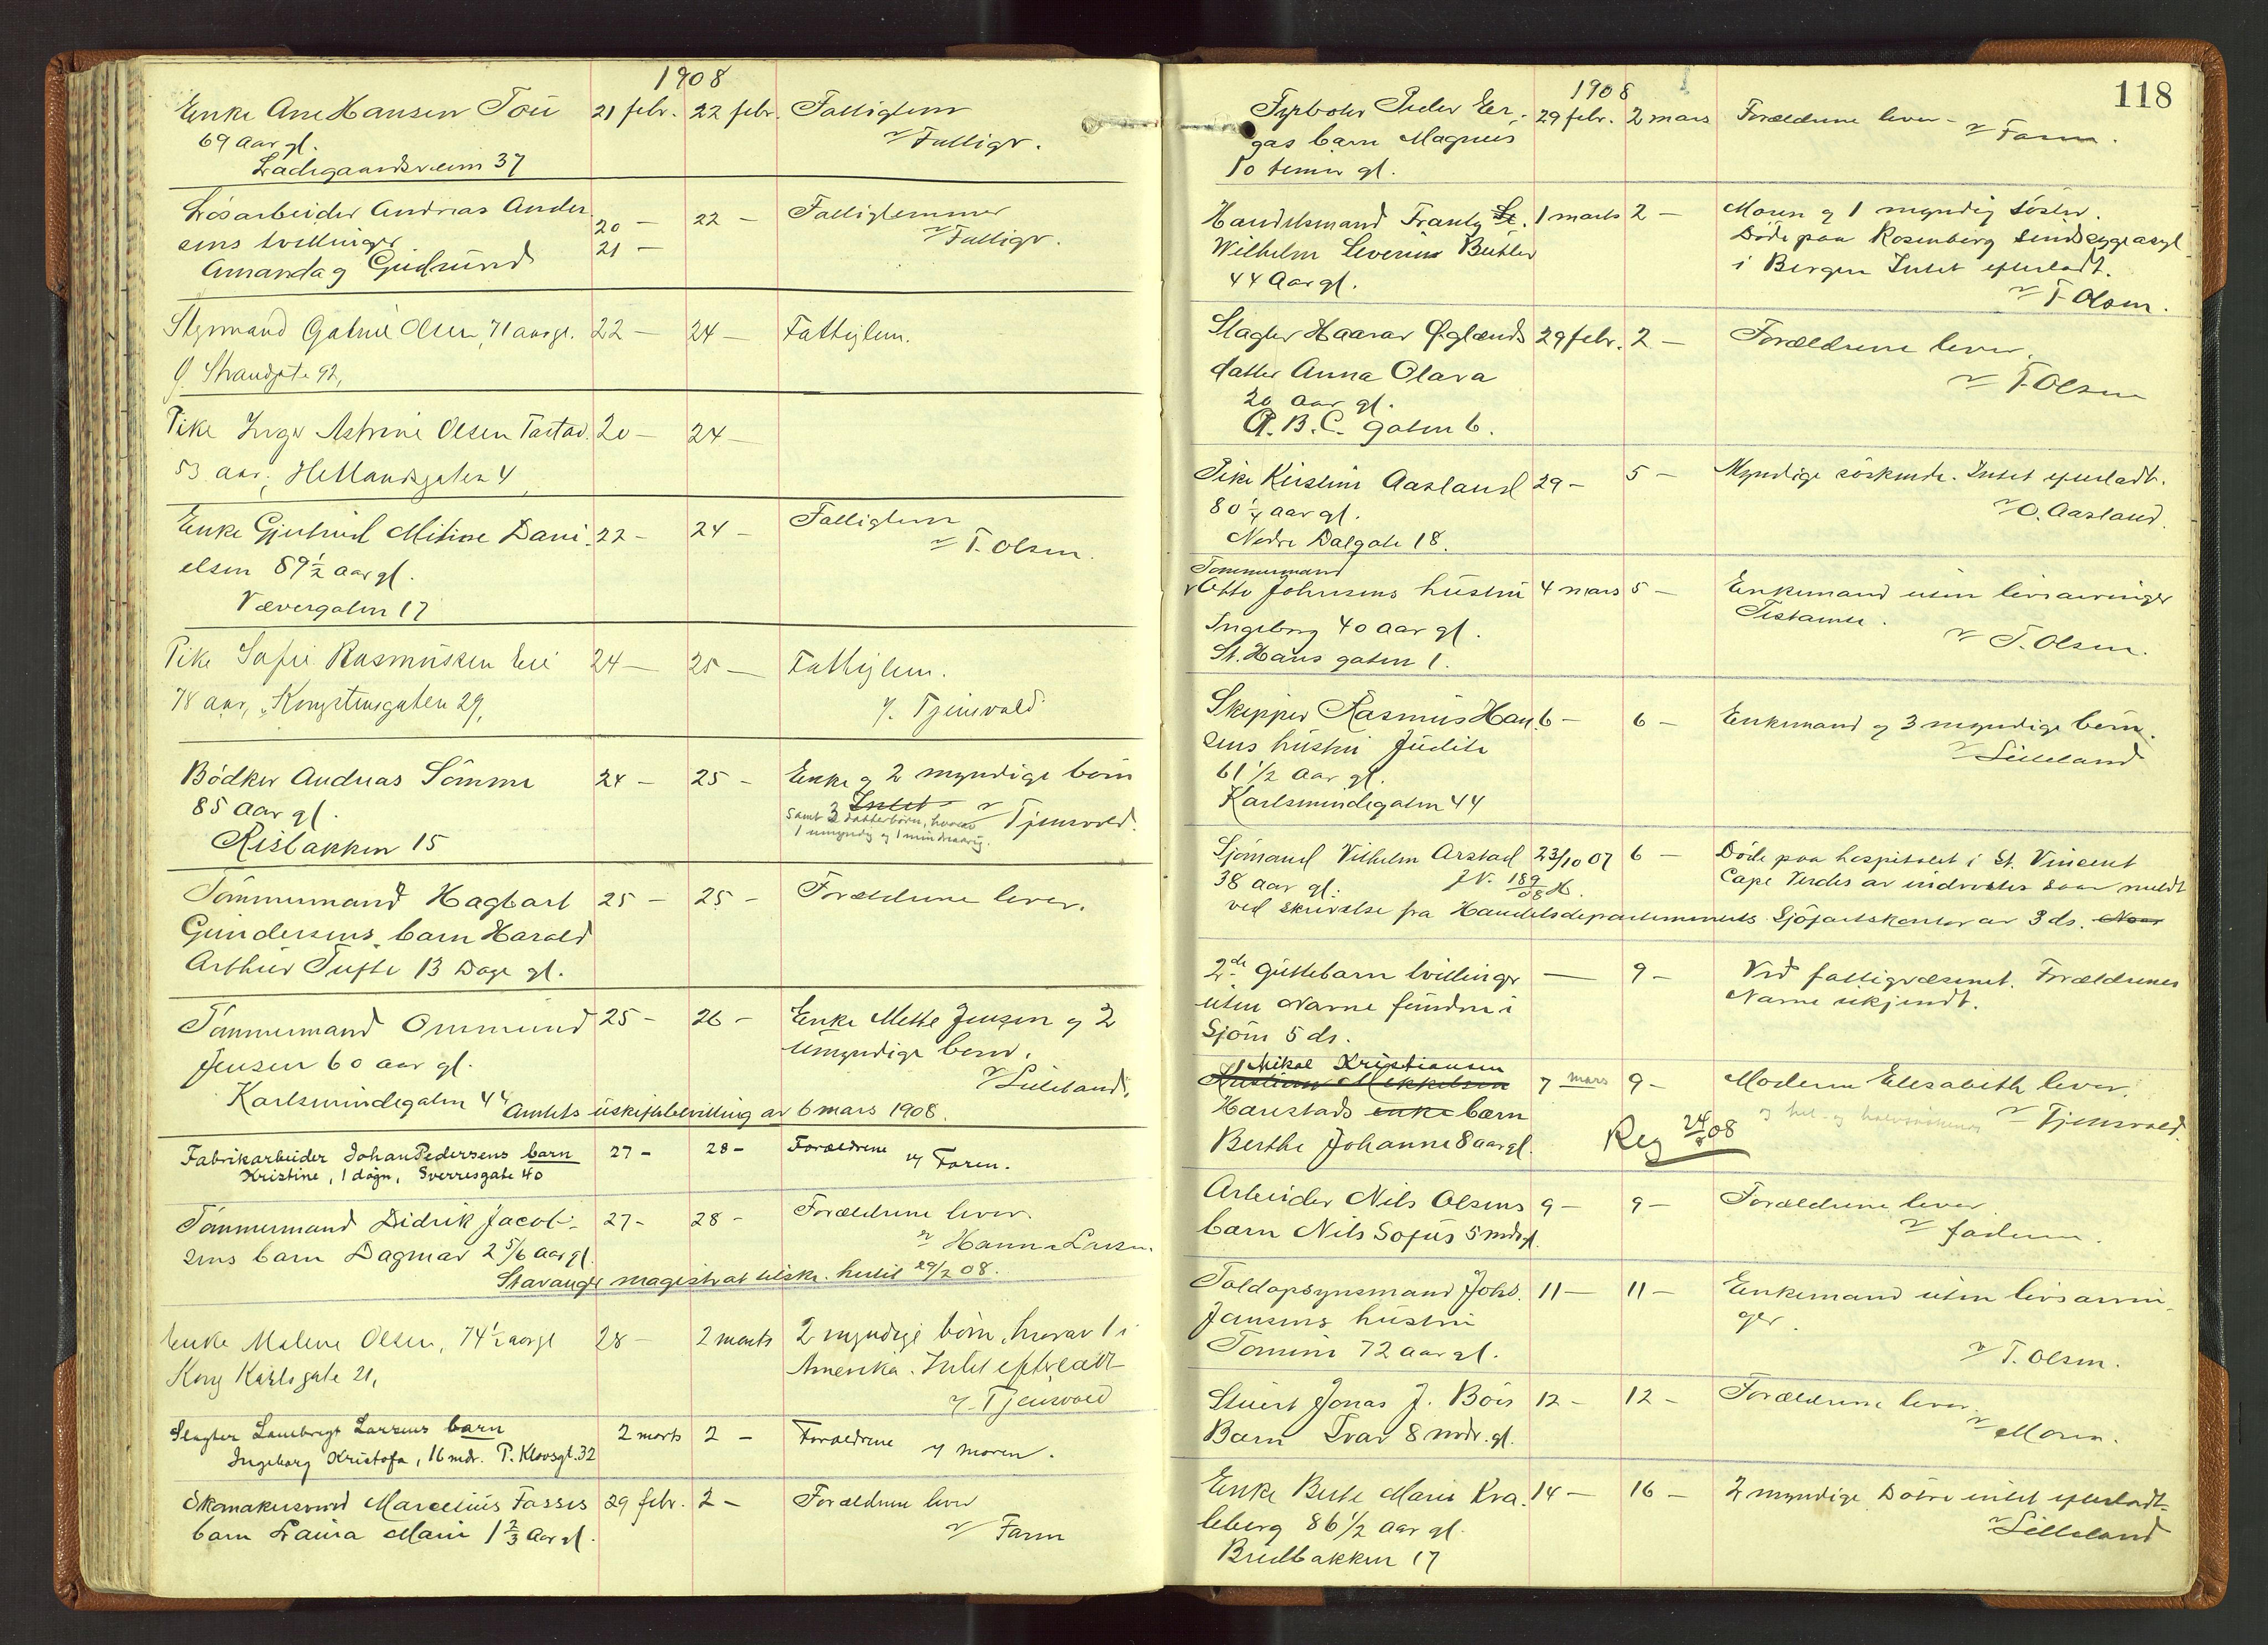 1908
Enke Ane Hansen Tou 21 febr. 22 febr. Fattiglem
69 aar gl. v/ Fattigv.
Ladegaardsveien 37
Løsarbeider Andreas Ander- 20 — 22 — Fattiglemmer
sens tvillinger 21 — v/ Fattigv.
Amanda og Gudrund
Styrmand Gabriel Olsen, 71 aar gl. 22 — 24 — Fattiglem.
Ø. Strandgate 92,
Pike Inger Astrine Olsen Tastad. 20 — 24 —
53 aar, Hetlandsgaten 4
Enke Gjertrud Mitine Dani- 22 — 24 — Fattiglem
elsen 89 1/2 aar gl. v/ T. Olsen.
Vævergaten 17
Pike Sofie Rasmussen Eie 24 — 25 — Fattiglem.
78 aar, Kongstensgaten 29, v/ Tjensvold
Bødker Andreas Sömme 24 — 25 — Enke og 2 myndige börn
85 aar gl. Intet v/ Tjensvold.
samt 3 datterbörn, hvorav
1 umyndig og 1 mindreaarig.
Risbakken 15
Tömmermand Hagbart 25 — 25 — Forældrene lever.
Gundersens barn Harald
Arthur Tufte 13 Dage gl.
Tömmermand Ommund 25 — 26 — Enke Mette Jensen og 2
Jensen 60 aar gl. umyndige børn.
v/ Lilleland.
Karlsmindegaten 44 Amtets uskiftebevilling av 6 mars 1908.
Fabrikarbeider Johan Pedersens barn 27 — 28 — Forældrene
Kristine, 1 døgn, Sverresgate 40 v/ Faren.
Tömmermand Didrik Jacob- 27 — 28 — Forældrene lever.
sens barn Dagmar 2 5/6 aar gl. v/ Hanna Larsen.
Stavanger magistrat tilskr. hertil 29/2 08.
Enke Malene Olsen, 74 1/2 aar gl 28 — 2 marts 2 myndige börn, hvorav 1 i
Kong Karls gate 21, Amerika. Intet efterladt
v/ Tjensvold
Slagter Lambregt Larsens barn 2 marts 2 — Forældrene
Ingeborg Kristofa, 16 mdr. P. Klovsgt. 32 v/ moren.
Skomakersvend Marcelius Fasses 29 febr. 2 — Forældrene lever
barn Laura Marie 1 2/3 aar gl. v/ Faren
118
1908
Fyrböter Peder Eer- 29 febr. 2 mars Forældrene lever — v/ Faren.
gas barn Magnus
10 timer gl.
Handelsmand Frantz Se. 1 marts 2 — Moren og 1 myndig söster.
Wilhelm Severin Buhler Döde paa Rosenberg sindsygeasyl
44 aar gl. i Bergen Intet efterladt.
v/ T. Olsen.
Slagter Haavar Øglænds 29 febr. 2 — Forældrene lever
datter Anna Olava v/ T. Olsen
20 aar gl.
A. B. C. gaten 6.
Pike Kirstine Aasland 29 — 5 — Myndige söskende. Intet efterladt.
80 1/4 aar gl. v/ O. Aasland.
Nedre Dalgate 18.
Tømmermand
Otto Johnsens hustru 4 mars 5 — Enkemand uten livsarvinger
Ingeborg 40 aar gl. Testamte.
St. Hans gaten 1. v/ T. Olsen.
Skipper Rasmus Han- 6 — 6 — Enkemand og 3 myndige børn.
sens hustru Judith v/ Lilleland
61 1/2 aar gl.
Karlsmindegaten 44
Sjömand Vilhelm Arstad 23/10 07 6 — Döde paa hospitalet i St. Vincent
38 aar gl. J.N. 189/08 H. Cape Verdes av indvoldes saar meldt
ved skrivelse fra Handelsdepartementets Sjöfartskontor av 3 ds.
2de guttebarn tvillinger — 9 — Ved fattigvæsenet. Forældrenes
uten navne funden i Navne ukjendt.
Sjöen 5 ds.
Mikal Kristiansen
Kristian Mikkelsen 7 mars 9 — Moderen Elisabeth lever.
Hanstads enke barn og hel- og halvsöskende v/ Tjensvold.
Berthe Johanne 8 aar gl. Reg 24/08
Arbeider Nils Olsens 9 — 9 — Forældrene lever
barn Nils Sofus 5 mdr gl. v/ faderen.
Toldopsynsmand Johs. 11 — 11 — Enkemand uten livsarvin-
Jansens hustru ger.
Tomine 72 aar gl. v/ T. Olsen.
Stuert Jonas J. Böes 12 — 12 — Forældrene lever
Barn Ivar 8 mdr. gl. v/ Moren.
Enke Berte Marie Kra- 14 — 16 — 2 myndige Dötre intet efterladt
leberg 86 1/2 aar gl. v/ Lilleland
Bredbakken 17